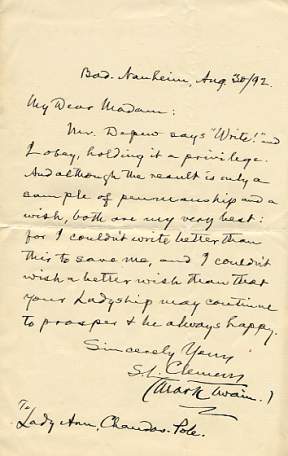 Bad-Nauheim, Aug. 30/92.
My Dear Madam:
Mr. Depew says "Write!" and
I obey, holding it a privilege.
And although the result is only a
sample of penmanship and a
wish, both are my very best:
for I couldn't write better than
this to save me, and I couldn't
wish a better wish than that
your Ladyship may continue
to prosper & be always happy.
Sincerely Yours
S. L. Clemens
(Mark Twain.)
To
Lady Ann, Chandos-Pole.